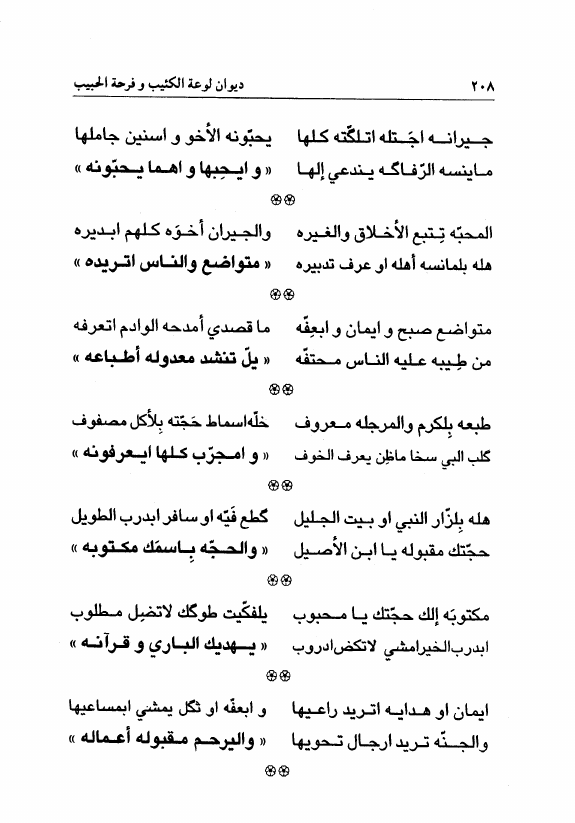 ٢٠٨ ديوان لوعة الكئيب و فرحة الحبيب
جــيرانــه اجَـتله اتـلگـّته كـلها يحبّونه الأخو و اسنين جاملها
مـاينسه الرّفاگـه يـندعي إلهـا « و ايـحِبها و اهـما يـحبّونه »
المحبّه تِـتبع الأخـلاق والغـيره والجـيران أخـوَه كـلهم ابـديره
هله بلمانسه أهله او عرف تدبيره « متواضع والنـاس اتـريده »
متواضـع صبح و ايمان و ابعِفّه ما قصدي أمدحه الوادم اتعرفه
من طِيبه عـليه النـاس مـحتفّه « يلّ تنشد معدوله أطـباعه »
طبعه بِلكرم والمرجله مـعروف خلّه اسماط حَجّته بِلأكل مصفوف
گلب البي سخا ماظن يعرف الخوف « و امـجرّب كـلها ايـعرفونه »
هله بِلزّار النبي او بـيت الجـليل گطع فَيّه او سافر ابدرب الطويل
حجّتك مقبوله يـا ابـن الأصـيل « والحـجّه بِـاسمَك مكـتوبه »
مكتوبَه إلك حجّتك يـا مـحبوب يلفكّيت طوگك لاتضِل مـطلوب
ابدرب الخير امشي لاتكض ادروب « يـهديك البـاري و قـرآنـه »
ايمان او هـدايـه اتـريد راعـيها و ابعفّه او ثگل يمشي ابمساعيها
والجـنّه تـريد ارجـال تـحويها « واليرحـم مـقبوله أعـماله »